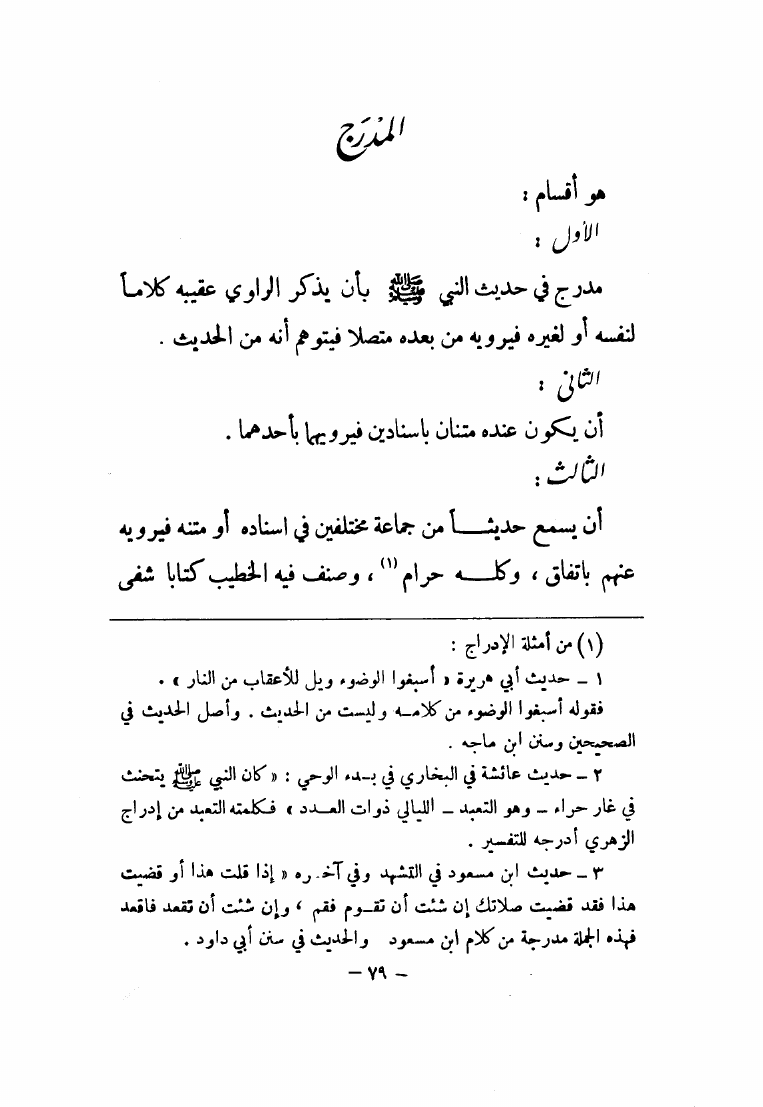 المُدْرَج
هو أقسام :
الأول :
مدرج في حديث النبي ﷺ بأن يذكر الراوي عقيبه كلامـاً
لنفسه أو لغيره فيرويه من بعده متصلا فيتوهم أنه من الحديث .
الثاني :
أن يكون عنده متنان باسنادين فيرويهما بأحدهما .
الثالث :
أن يسمع حديثـــاً من جماعة مختلفين في اسناده أو متنه فيرويه
عنهم باتفاق ، وكلـــه حرام (١) ، وصنف فيه الخطيب كتابا شفى
(١) من أمثلة الإدراج :
١ ــ حديث أبي هريرة « أسبغوا الوضوء ويل للأعقاب من النار » .
فقوله أسبغوا الوضوء من كلامـه وليست من الحديث . وأصل الحديث في
الصحيحين وسنن ابن ماجه .
٢ ــ حديث عائشة في البخاري في بـدء الوحي : « كان النبي ﷺ يتحنث
في غار حراء ــ وهو التعبد ــ الليالي ذوات العـدد » فكلمته التعبد من إدراج
الزهري أدرجه للتفسير .
٣ ــ حديث ابن مسعود في التشهد وفي آخـره « إذا قلت هذا أو قضيت
هذا فقد قضيت صلاتك إن شئت أن تقـوم فقم ، وإن شئت أن تقعد فاقعد
فهذه الجملة مدرجة من كلام ابن مسعود والحديث في سنن أبي داود .
ــ ٧٩ ــ